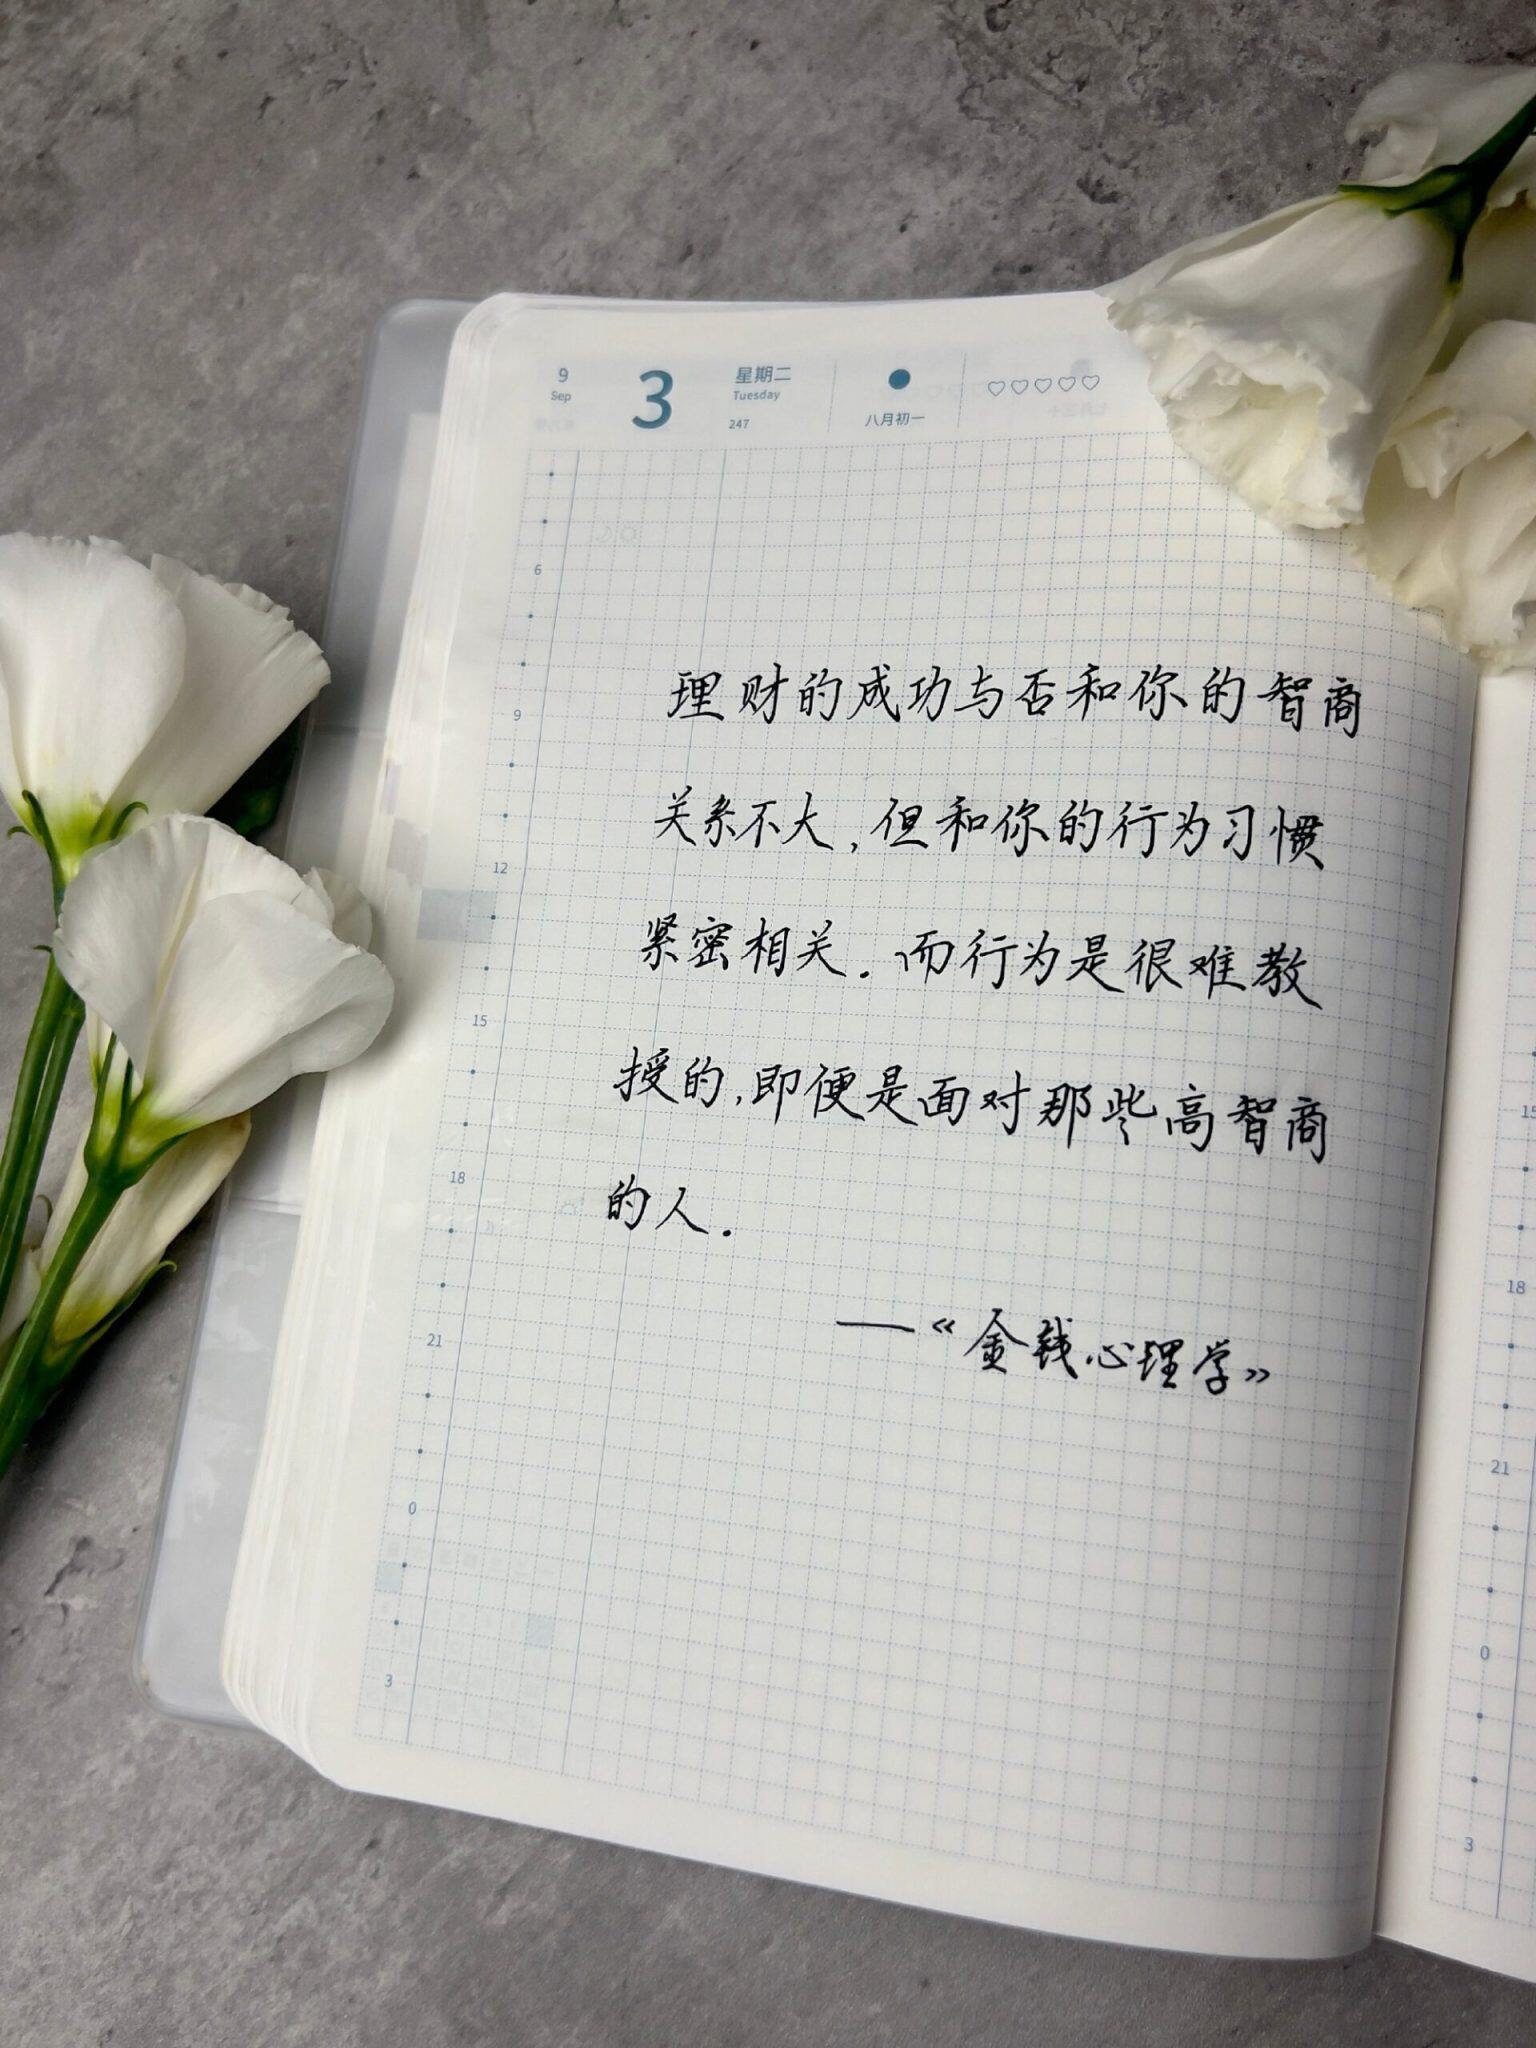 9
Sep
3
星期二
Tuesday
247
八月初一
6
9
12
15
18
21
0
3
理财的成功与否和你的智商
关系不大,但和你的行为习惯
紧密相关.而行为是很难教
授的,即便是面对那些高智商
的人.
—《金钱心理学》
15
18
21
0
3